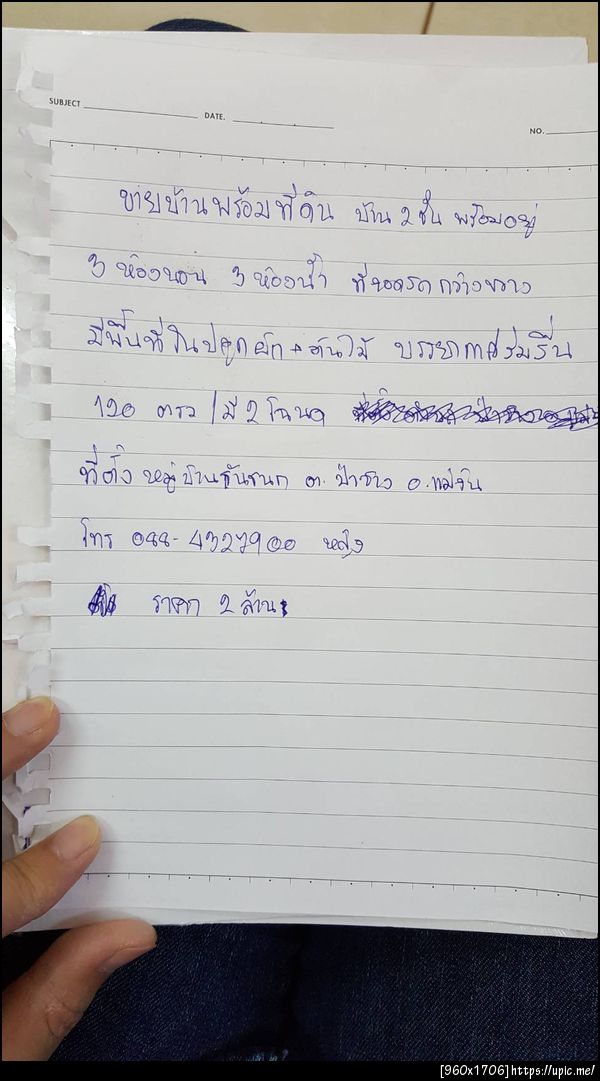 SUBJECT
DATE.
NO.
ขายบ้านพร้อมที่ดิน บ้าน 2 ชั้น พร้อมอยู่
3 ห้องนอน 3 ห้องน้ำ ที่จอดรถกว้างขวาง
มีพื้นที่ในปลูกผัก + ต้นไม้ บรรยากาศร่มรื่น
120 ตรว / มี 2 โฉนด
ที่ตั้ง หมู่บ้าน ต. ป่าซาง อ. แม่จัน
โทร 088-4327900 หญิง
ราคา 2 ล้าน
[960x1706]https://upic.me/